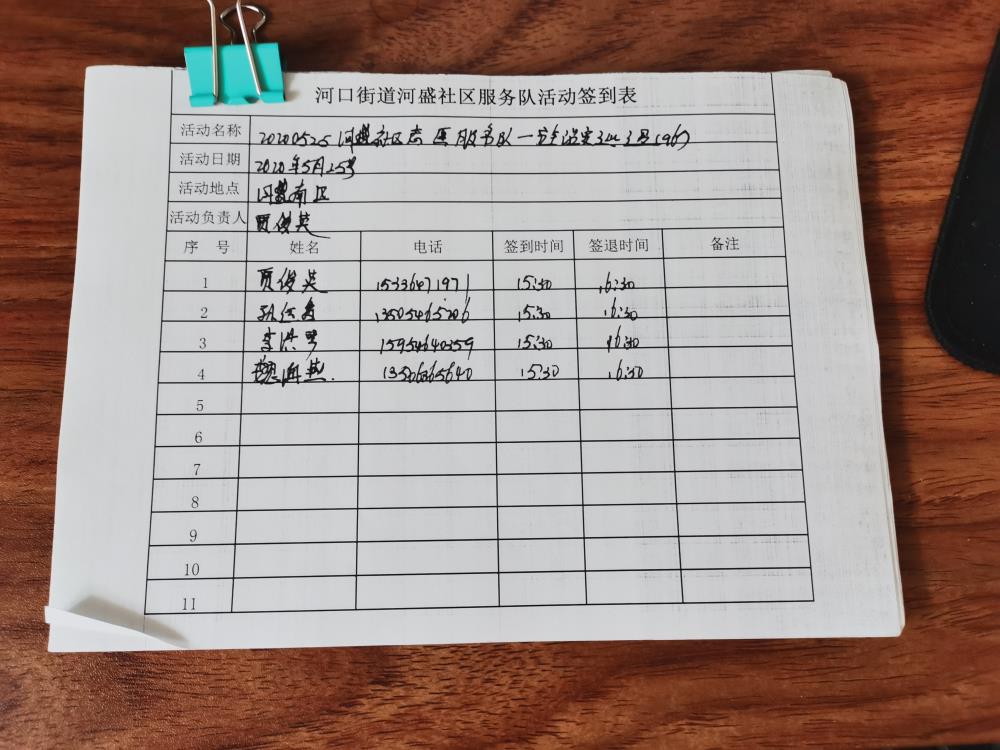 河口街道河盛社区服务队活动签到表
活动名称 20200525 河盛社区 服务队一
活动日期 2020年5月25号
活动地点 河盛南区
活动负责人 贾俊英
序 号 姓名 电话 签到时间 签退时间 备注
1 贾俊英 15336471971 15:30 16:30
2 13505465206 15:30 16:30
3 李洪 15954640359 15:30 16:30
4 魏海燕 15:30 16:30
5
6
7
8
9
10
11